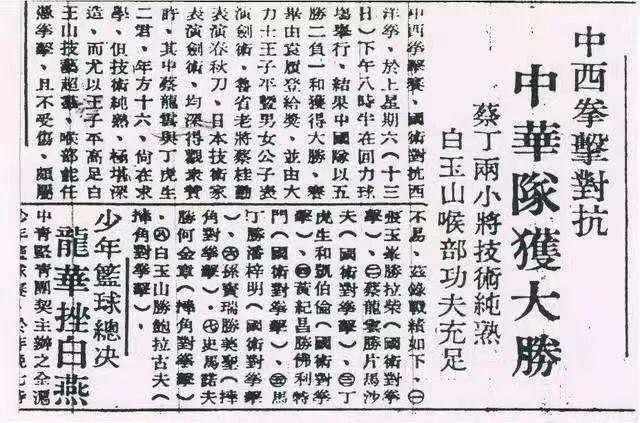 中西拳擊對抗
中華隊獲大勝
蔡丁兩小將技術純熟
白玉山喉部功夫充足
中西拳擊賽、國術對抗西
洋拳、於上星期六（十三
日）下午八時半在回力球
塲舉行、結果中國隊以五
勝二負一和獲得大勝、賽
畢由袁履登給獎、並由大
力士王子平暨男女公子表
演劍術、魯省老將蔡桂勤
表演春秋刀、日本技術家
表演劍術、均深得觀衆贊
許、其中蔡龍雲與丁虎生
二君、年方十六、尙在求
學、但技術純熟、極堪深
造、而尤以王子平高足白
玉山技藝超羣、喉部能任
憑拳擊、且不受傷、頗屬
不易、茲錄戰績如下、㊀
張玉勝拉柴（國術對拳
擊）、㊁蔡龍雲勝片馬沙
夫（國術對拳擊）、㊂丁
虎生和劉伯倫（國術對拳
擊）、㊃黃紀昌勝佛利特
門（國術對拳擊）、㊄馬
丁勝潘梓明（國術對拳擊
）、㊅孫寶瑞勝美聖（摔
角對拳擊）、㊆史馬諾夫
勝何金章（摔角對拳擊）
、㊇白玉山勝鮑拉古夫（
摔角對拳擊）、
少年籃球總决
龍華挫白燕
中青堅青團契主辦之全滬